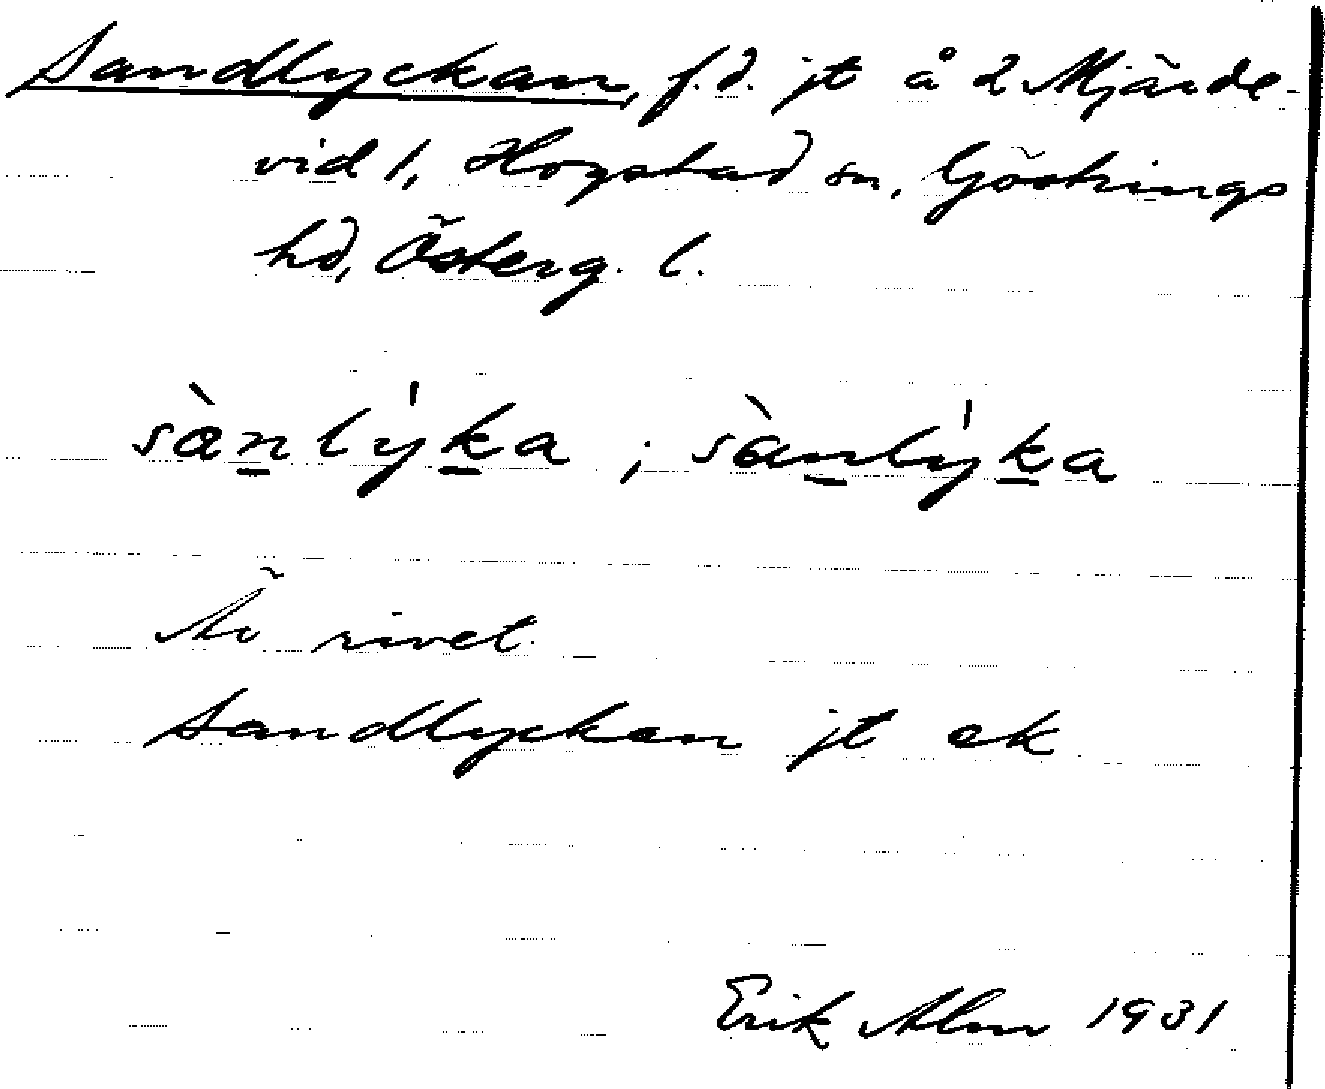 Sandlyckan, f.d. jt å 2 Mjärde-
vid 1, Hogstad sn, Göstrings
hd, Österg. l.
sàn̲lýk̲a ; sàn̲lýk̲a
Är rivet.
Sandlyckan jt ek
Erik Alm 1931